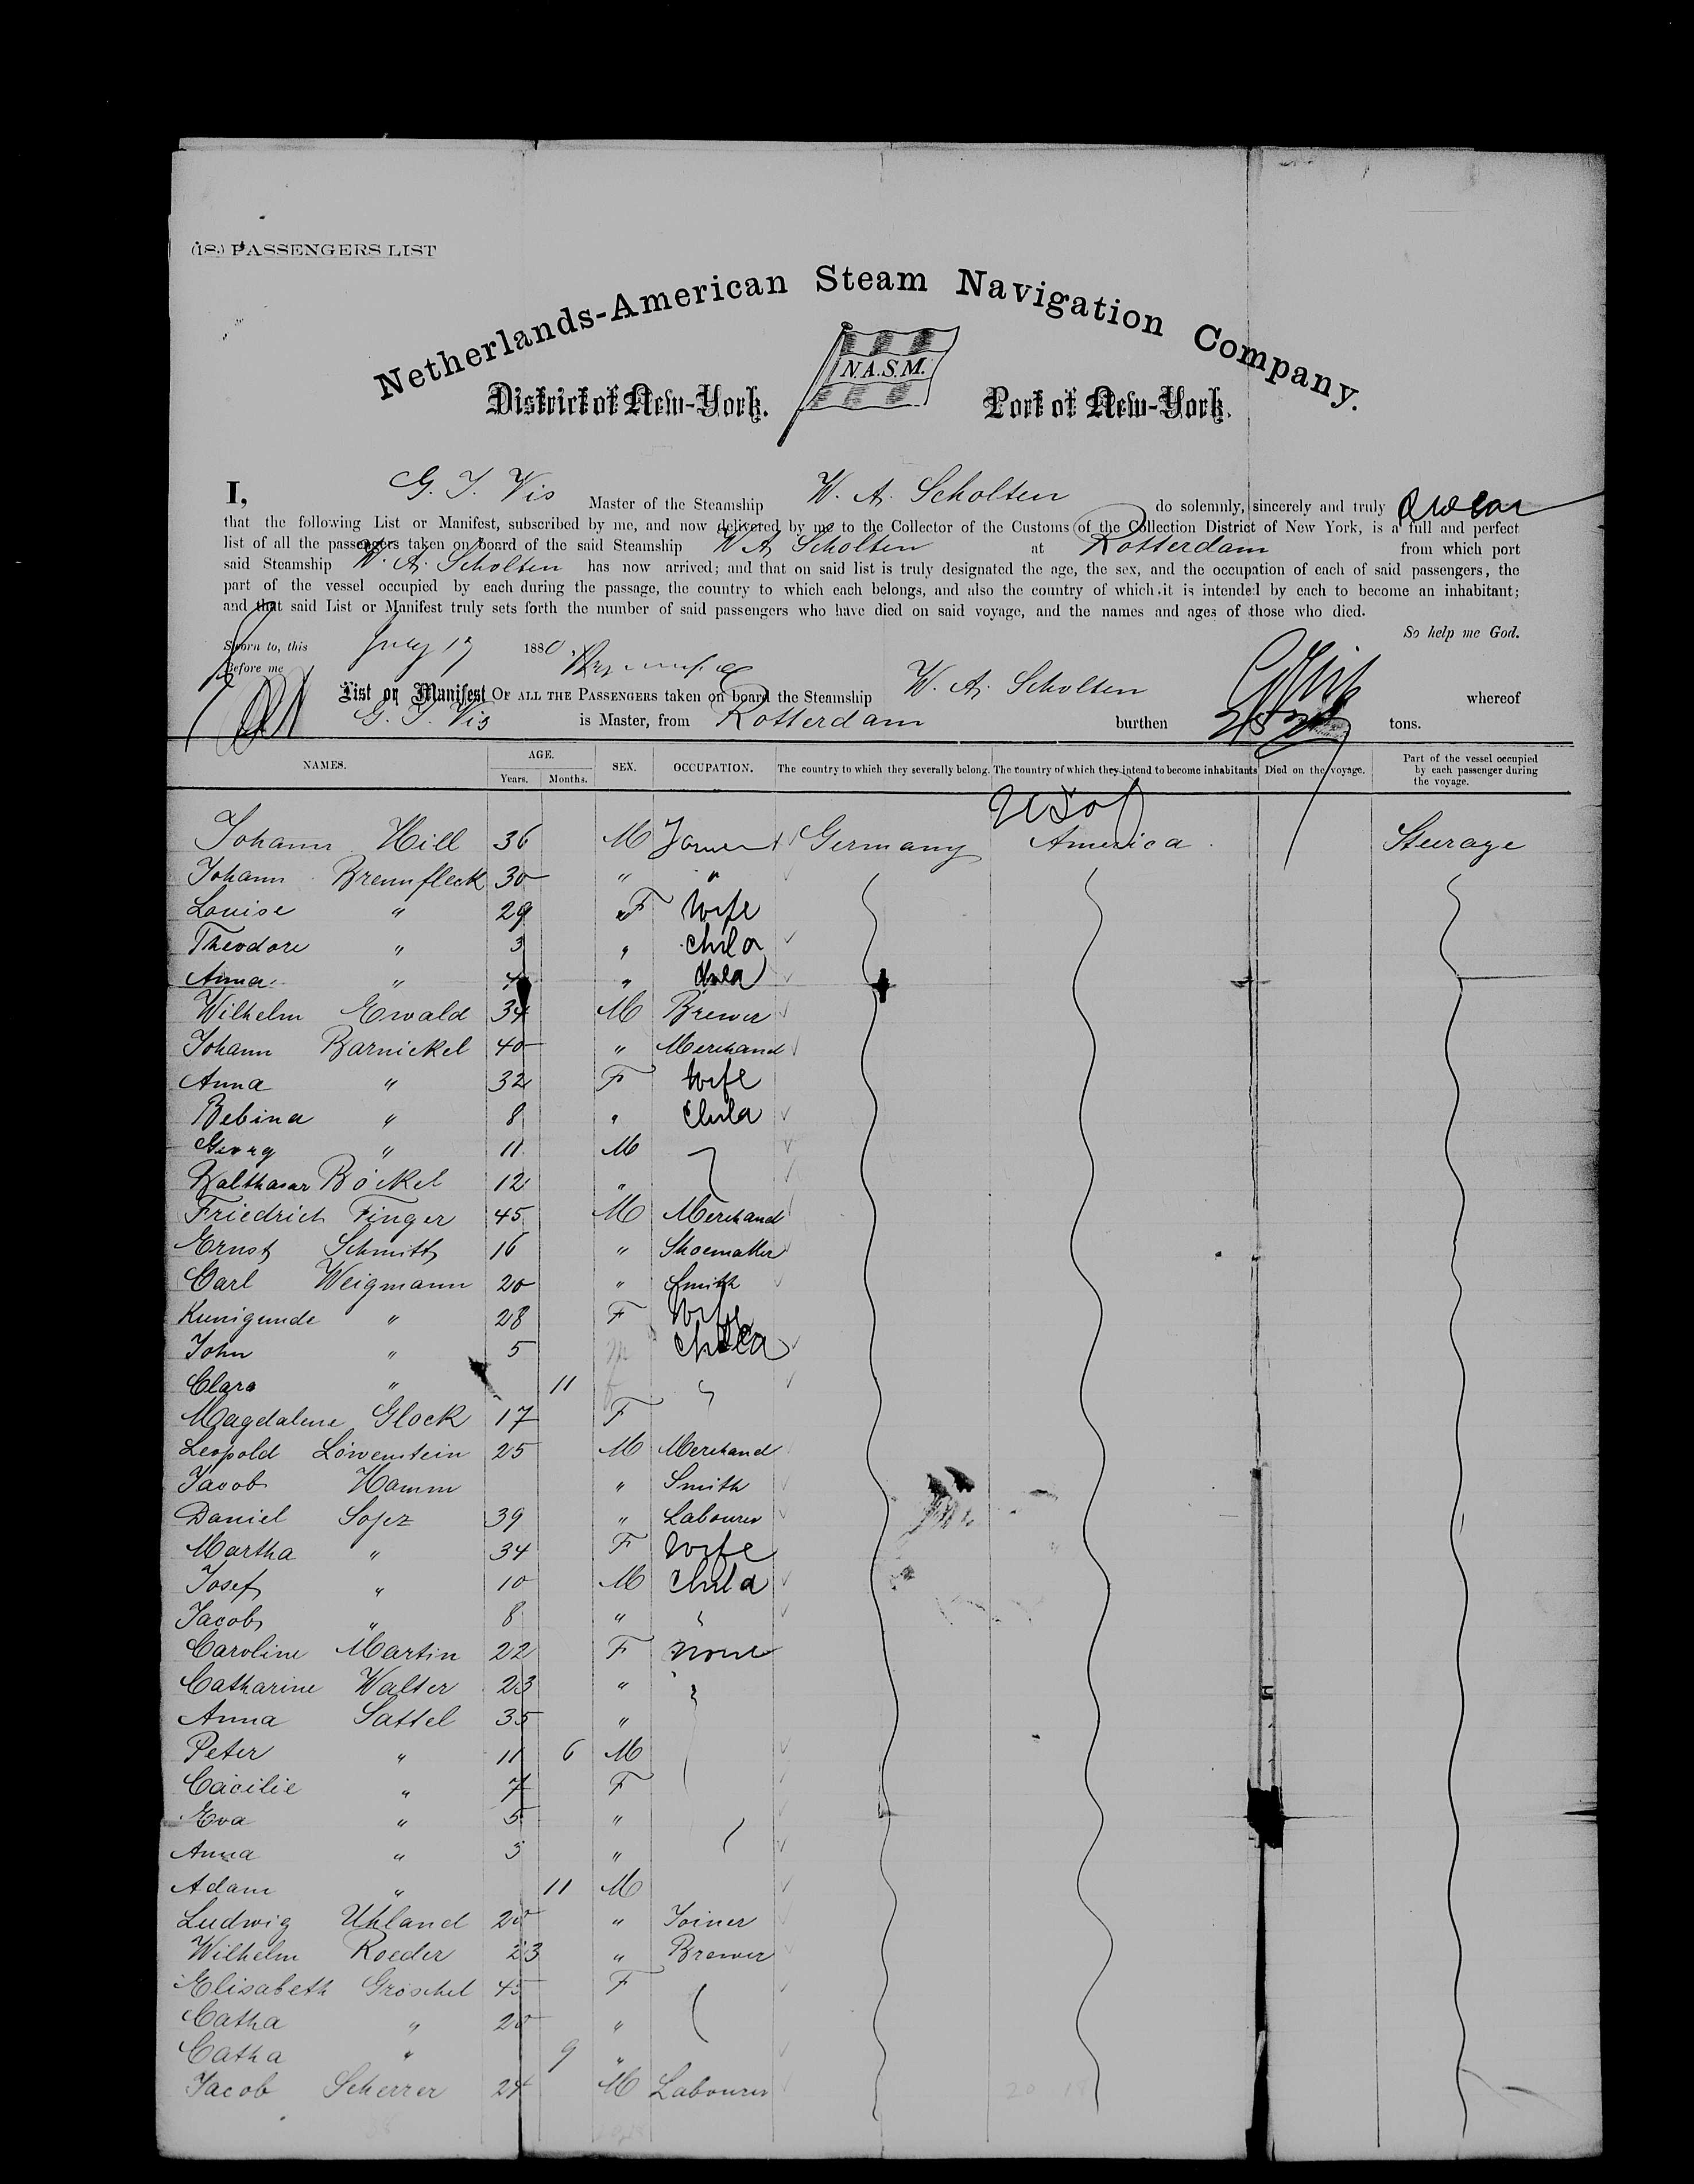 (18.) PASSENGERS LIST
Netherlands-American Steam Navigation Company.
N.A.S.M.
District of New-York. Port of New-York.
I, G. J. Vis Master of the Steamship W. A. Scholten do solemnly, sincerely and truly swear
that the following List or Manifest, subscribed by me, and now delivered by me to the Collector of the Customs of the Collection District of New York, is a full and perfect
list of all the passengers taken on board of the said Steamship W. A. Scholten at Rotterdam from which port
said Steamship W. A. Scholten has now arrived; and that on said list is truly designated the age, the sex, and the occupation of each of said passengers, the
part of the vessel occupied by each during the passage, the country to which each belongs, and also the country of which it is intended by each to become an inhabitant;
and that said List or Manifest truly sets forth the number of said passengers who have died on said voyage, and the names and ages of those who died.
So help me God.
Sworn to, this July 17 1880.
Before me
List or Manifest OF ALL THE PASSENGERS taken on board the Steamship W. A. Scholten whereof
G. J. Vis is Master, from Rotterdam burthen tons.
NAMES. AGE. Years. Months. SEX. OCCUPATION. The country to which they severally belong. The country of which they intend to become inhabitants Died on the voyage. Part of the vessel occupied by each passenger during the voyage.
U S of
Johann Hill 36 M Farmer Germany America Steerage
Johann Brennfleck 30 " "
Louise " 29 F Wife
Theodore " 3 " child
Anna " " child
Wilhelm Ewald 34 M Brewer
Johann Barnickel 40 " Merchand
Anna " 32 F Wife
Bebina " 8 " Child
Georg " 11 M
Balthasar Böckel 12 "
Friedrich Finger 45 M Merchand
Ernst Schmitt 16 " Shoemaker
Carl Weigmann 20 " Smith
Kunigunde " 28 F Wife
John " 5 M Child
Clara " 11 f
Magdalene Glock 17 F
Leopold Löwenstein 25 M Merchand
Jacob Hamm " Smith
Daniel Sopz 39 " Labourer
Martha " 34 F Wife
Josef " 10 M Child
Jacob " 8 "
Caroline Martin 22 F None
Catharine Walter 23 "
Anna Sattel 35 "
Peter " 11 6 M
Cäcilie " 7 F
Eva " 5 "
Anna " 3 "
Adam " 11 M
Ludwig Uhland 20 " Joiner
Wilhelm Roeder 23 " Brewer
Elisabeth Gröschel 45 F
Catha " 20 "
Catha " 9 "
Jacob Scherrer 24 M Labourer